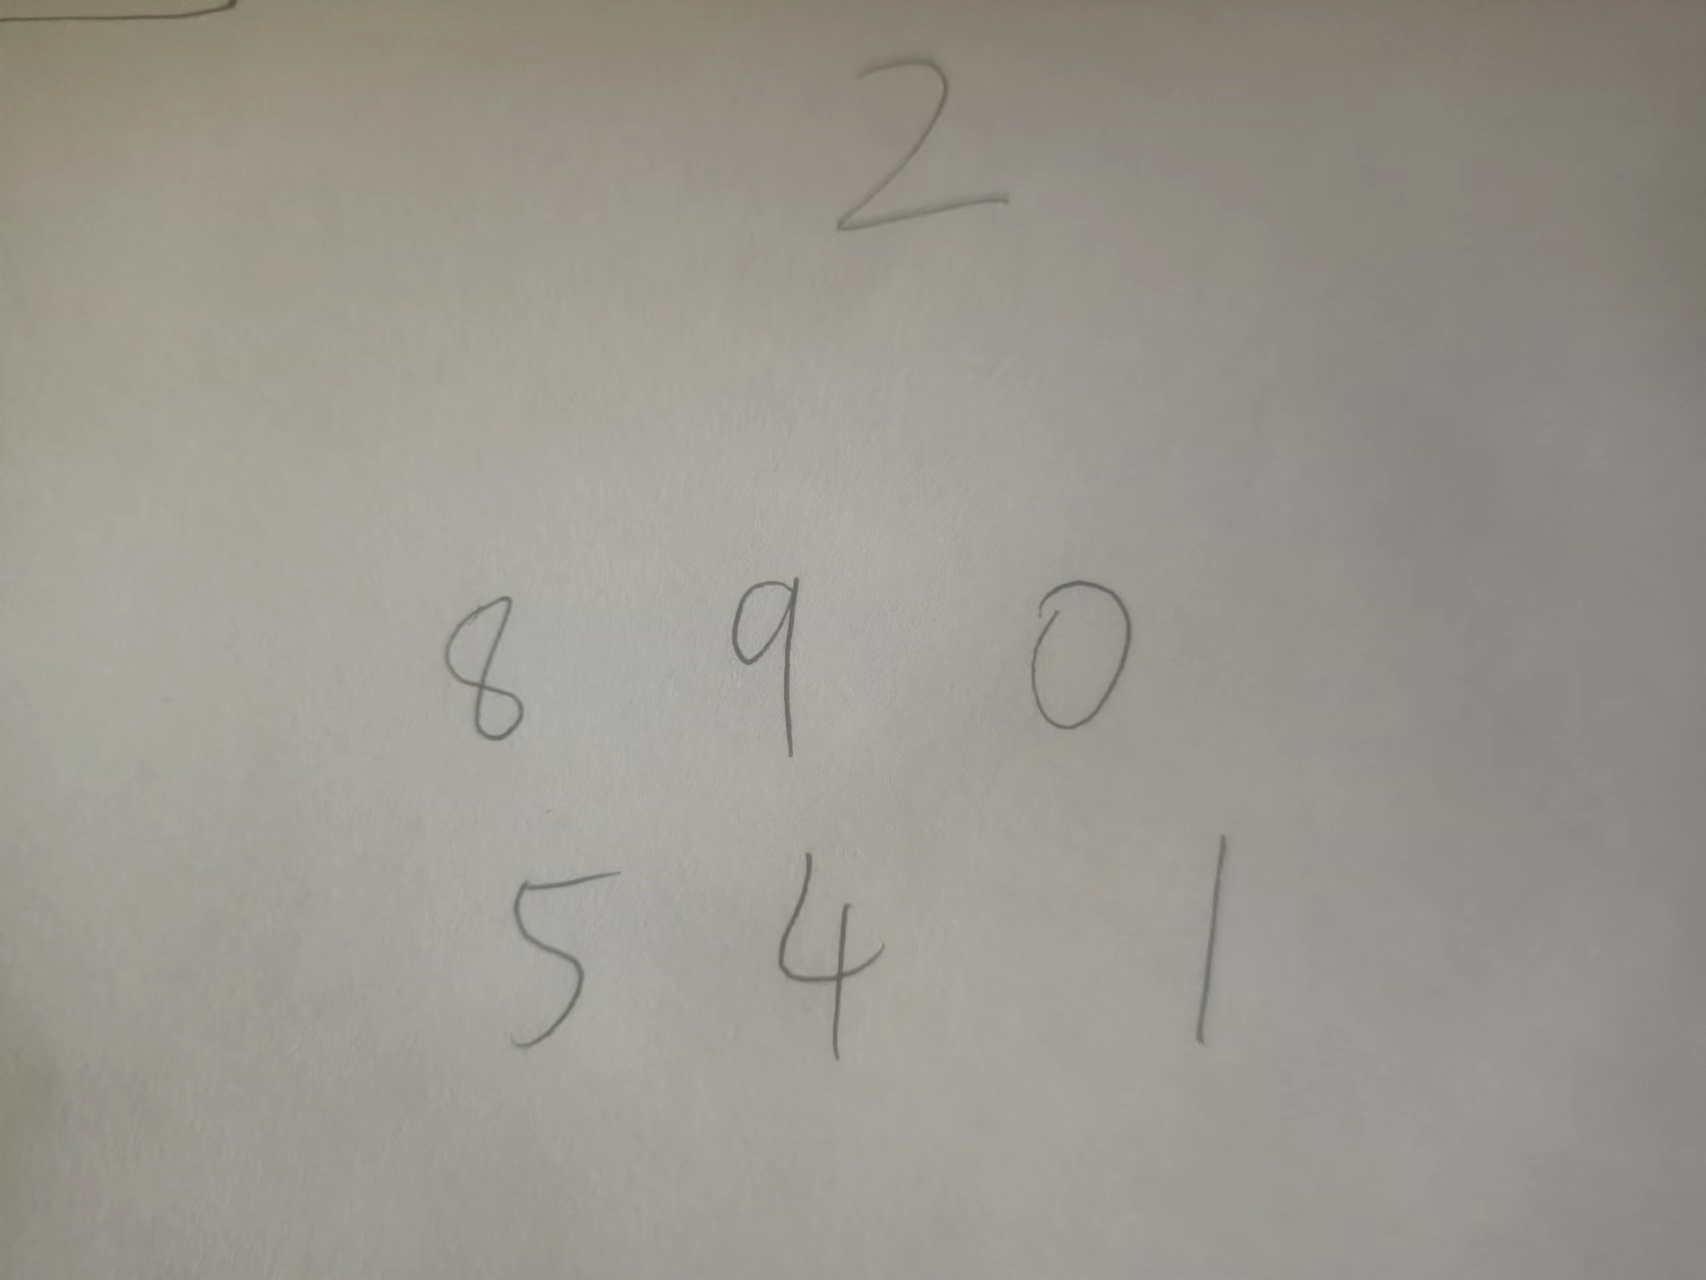 2
8 9 0
5 4 1